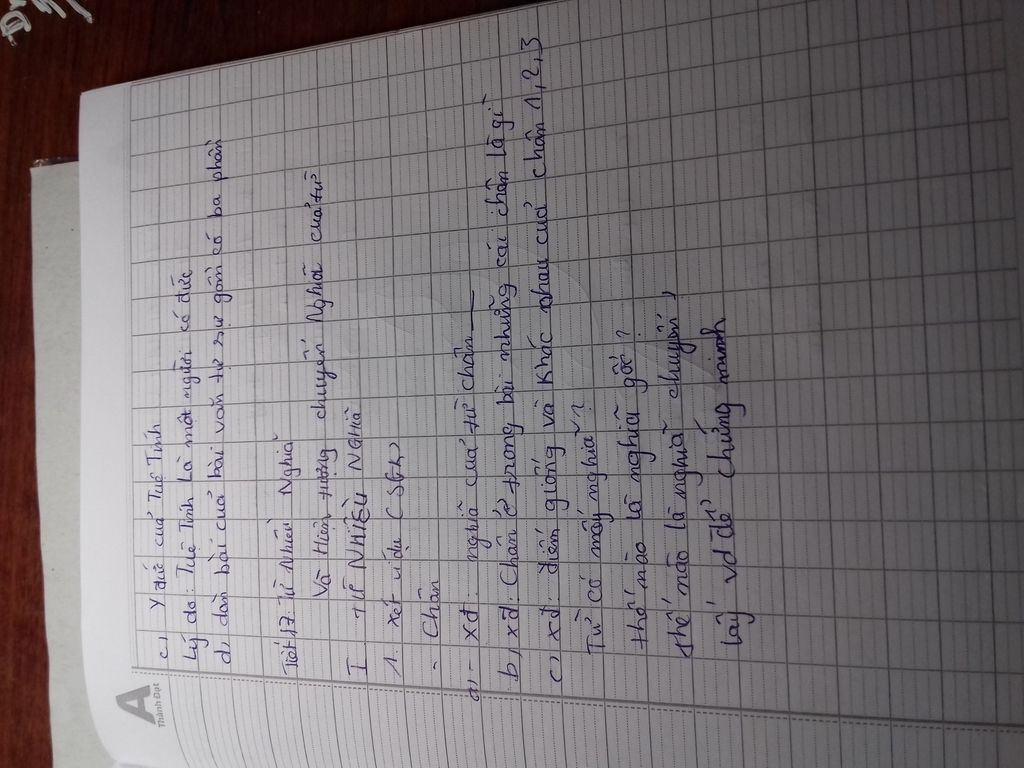 A
Thành Đạt
c, Y đức của Tuệ Tĩnh
Lý do: Tuệ Tĩnh là một người có đức
d, dàn bài của bài văn tự sự gồm có ba phần
Tiết 17: Từ Nhiều Nghĩa
Và Hiện tượng chuyển Nghĩa của từ
I TỪ NHIỀU NGHĨA
1. Xét ví dụ (SGK)
- Chân
a, - xđ: nghĩa của từ chân
b, xđ: Chân ở trong bài những cái chân là gì
c, xđ: điểm giống và khác nhau của chân 1, 2, 3
Từ có mấy nghĩa?
thế nào là nghĩa gốc?
thế nào là nghĩa chuyển,
lấy vd để chứng minh